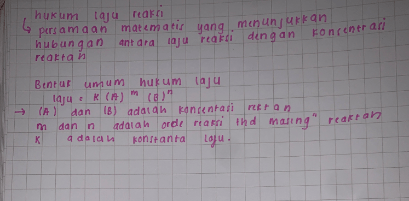 hukum laju reaksi
↳ persamaan matematis yang menunjukkan
hubungan antara laju reaksi dengan konsentrasi
reaktan
Bentuk umum hukum laju
laju = K (A)^m (B)^n
→ (A) dan (B) adalah konsentasi rektan
m dan n adalah orde reaksi thd masing" reaktan
K adalah konstanta laju.